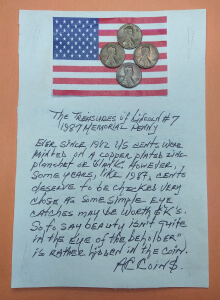 The Treasures of Lincoln #7
1987 Memorial Penny
Ever since 1982 US cents were
minted on a copper plated zinc
planchet or blank. However,
some years, like 1987, cents
deserve to be checked very
close as some simple eye
catches may be worth $K's.
So to say beauty isn't quite
in the eye of the beholder"
is rather hidden in the coin.
AC Coin$.